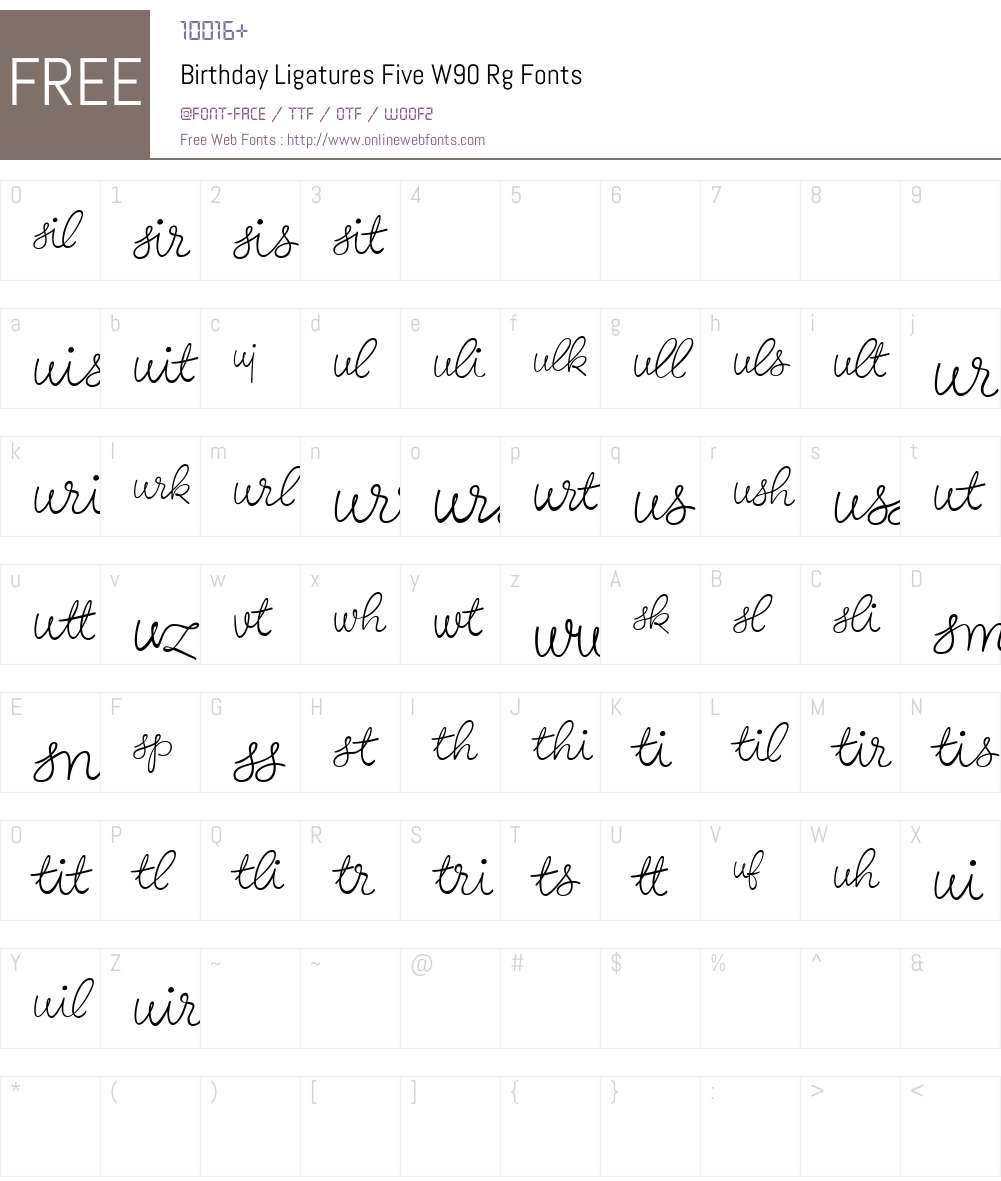 FREE
10016+
Birthday Ligatures Five W90 Rg Fonts
@FONT-FACE / TTF / OTF / WOOF2
Free Web Fonts : http://www.onlinewebfonts.com
0 1 2 3 4 5 6 7 8 9
sil sir sis sit
a b c d e f g h i j
uis uit uj ul uli ulk ull uls ult ur
k l m n o p q r s t
uri urk url urt us ush uss ut
u v w x y z A B C D
utt uz vt wh wt sk sl sli sm
E F G H I J K L M N
sn sp ss st th thi ti til tir tis
O P Q R S T U V W X
tit tl tli tr tri ts tt uf uh ui
Y Z ~ ~ @ # $ % ^ &
uil uir
* ( ) [ ] { } : > <